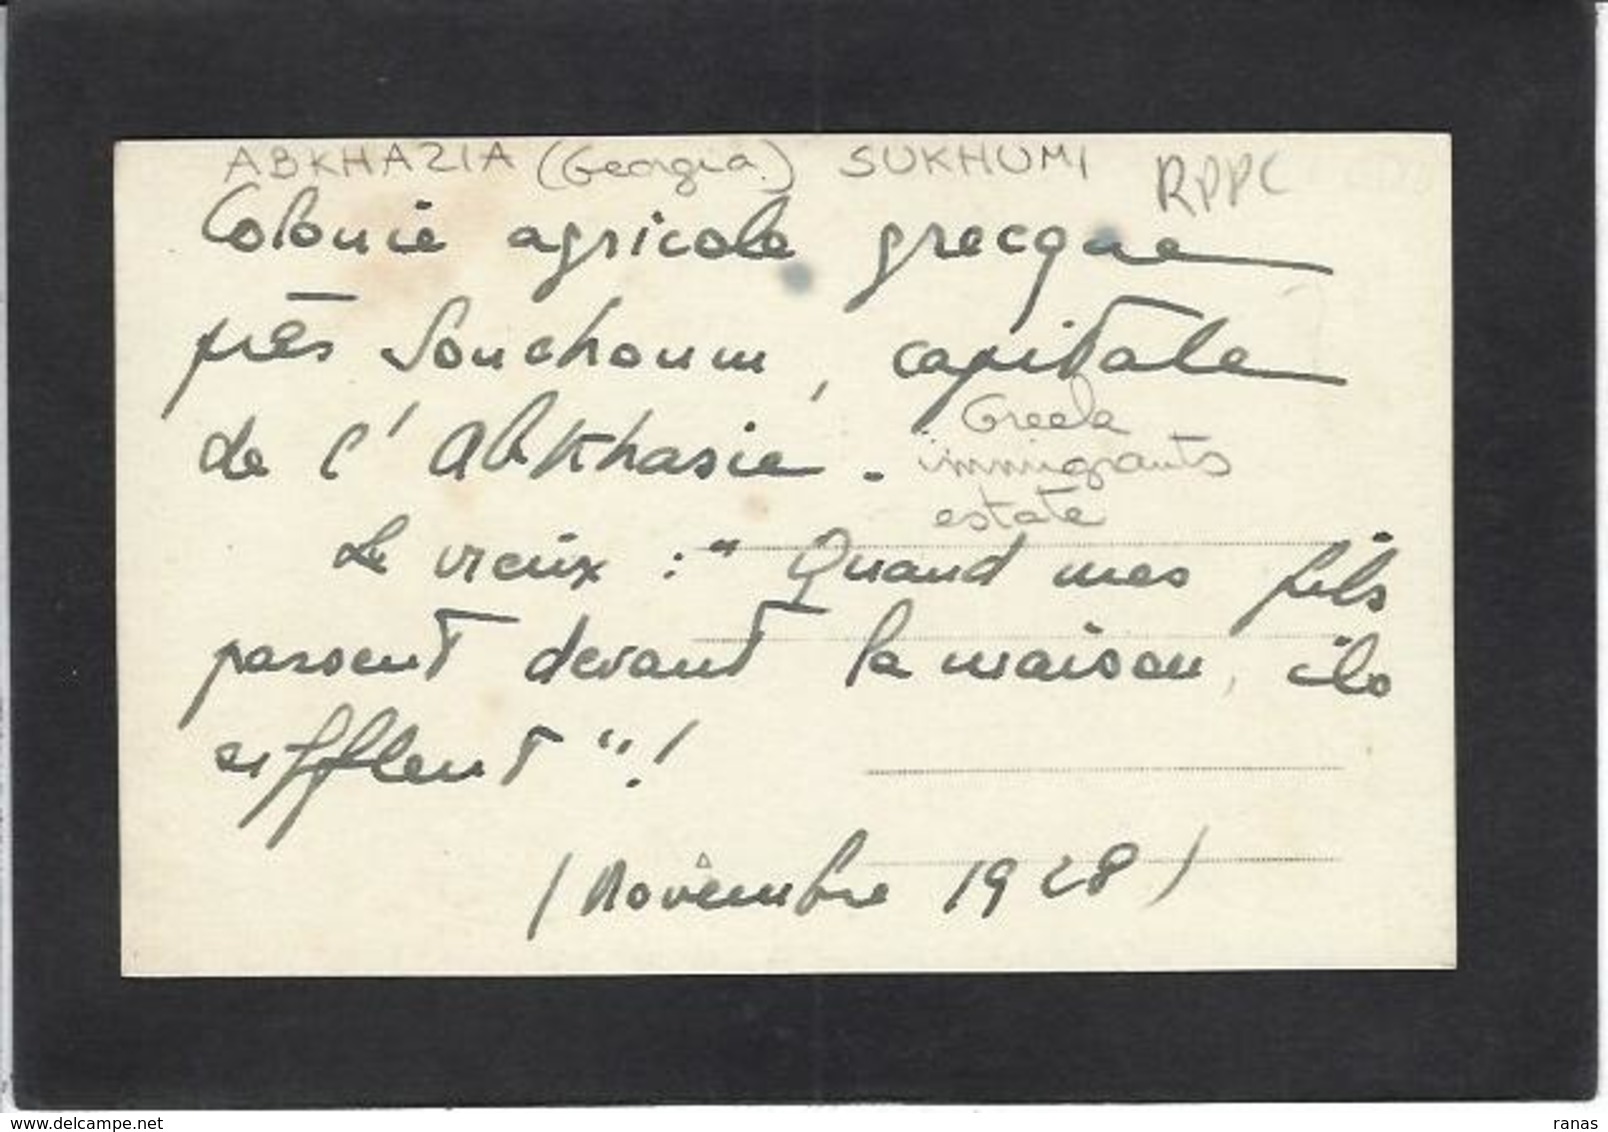 ABKHAZIA (Georgia) SUKHUMI RPPC
Colonie agricole grecque
près Souchoum, capitale
de l'Abkhasie.
Greek
immigrants
estate
Le vieux : " Quand mes fils
passent devant la maison, ils
sifflent "!
(Novembre 1928)
www.delcampe.net
ranas